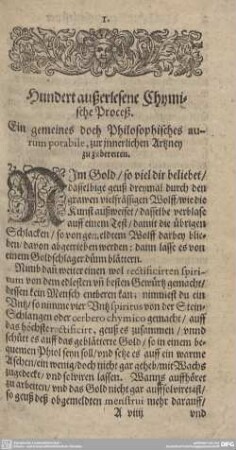 1.
Hundert außerlesene Chymi-
sche Proceß.
Ein gemeines doch Philosophisches au-
rum potabile, zur innerlichen Artzney
zu zubereiten.
NIm Gold / so viel dir beliebet /
dasselbige geuß dreymal durch den
grawen vielfrässigen Wolff / wie die
Kunst außweiset / dasselbe verblase
auff einem Test / damit die übrigen
Schlacken / so von dem Wolff darbey blie-
ben / davon abgetrieben werden: dann lasse es von
einem Goldschlager dünn blättern.
Nimb dañ weiter einen wol rectificirten spiri-
tum von dem edlesten vñ besten Gewürtz gemacht /
dessen ein Mensch entberen kan: nimmest du ein
Untz / so nimme vier Untz spiritus von der Stein-
Schlangen oder cerbero chymico gemacht / auff
das höchste rectificirt, geuß es zusammen / vnnd
schütt es auff das geblätterte Gold / so in einem be-
quemen Phiel seyn soll / vnd setze es auff ein warme
Aschen / ein wenig / doch nicht gar geheb / mit Wachs
zugedeckt / vnd solviren lassen. Wanns auffhöret
zu arbeiten / vnd das Gold nicht gar auffsolvirt ist /
so geuß deß obgemeldten menstrui mehr darauff /
A vnd